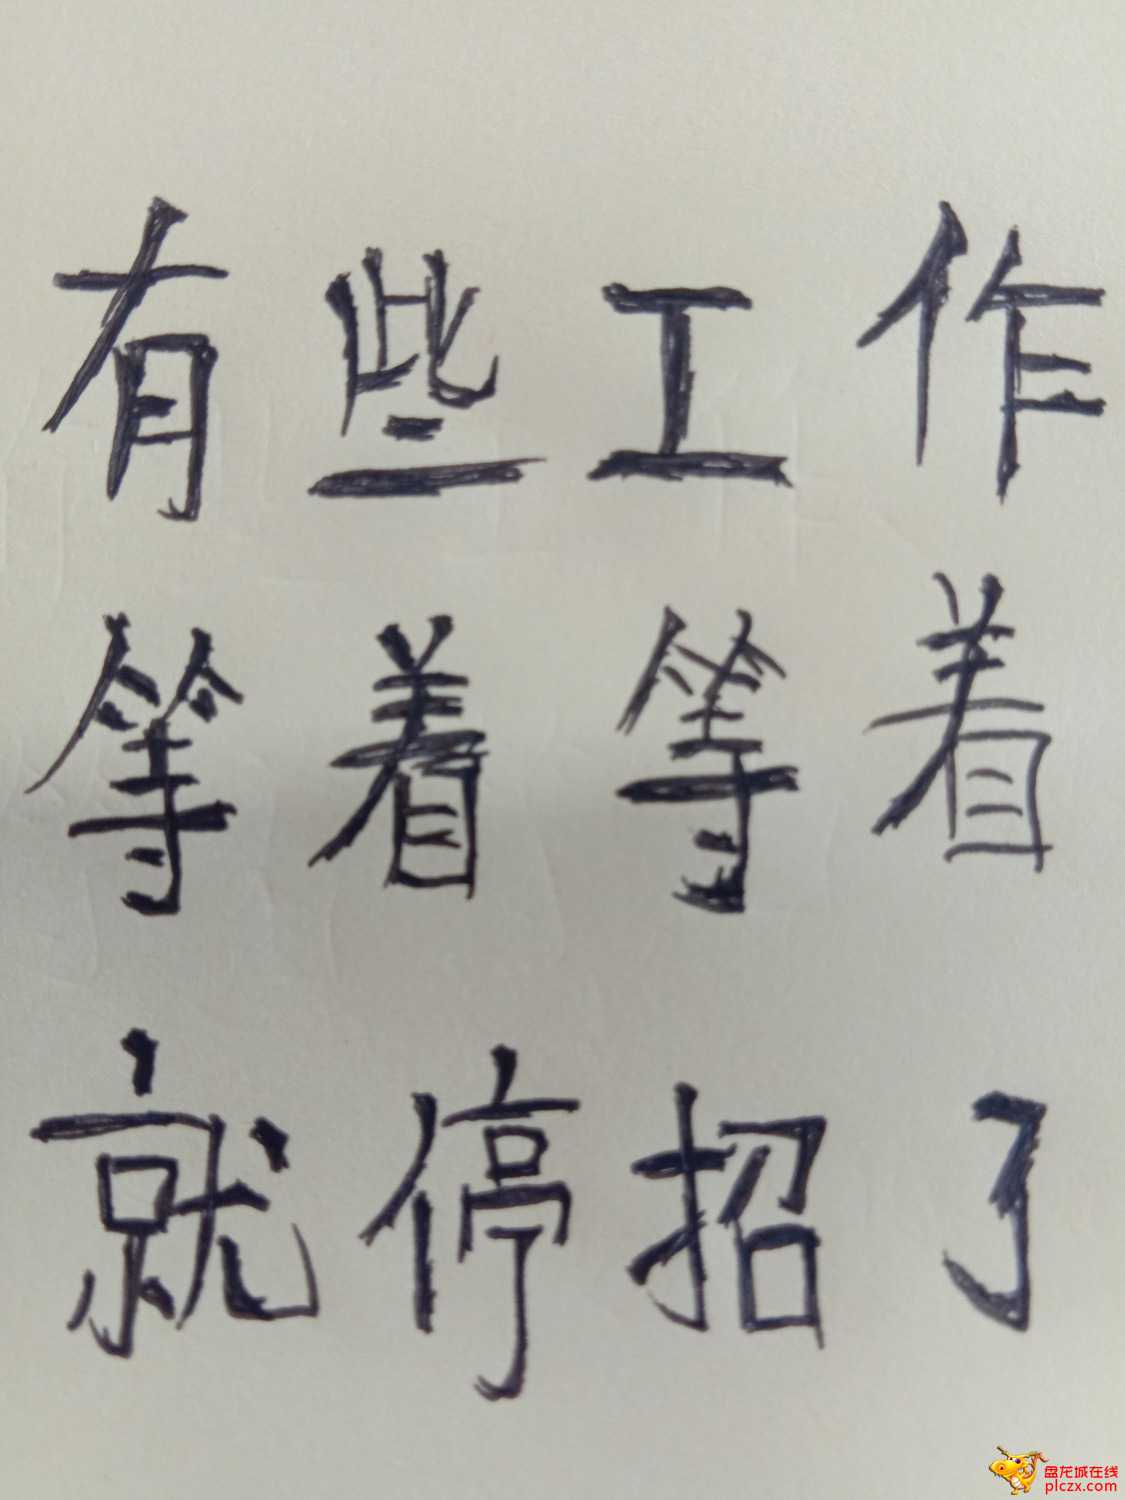 有些工作
等着等着
就停招了
盘龙城在线
plczx.com